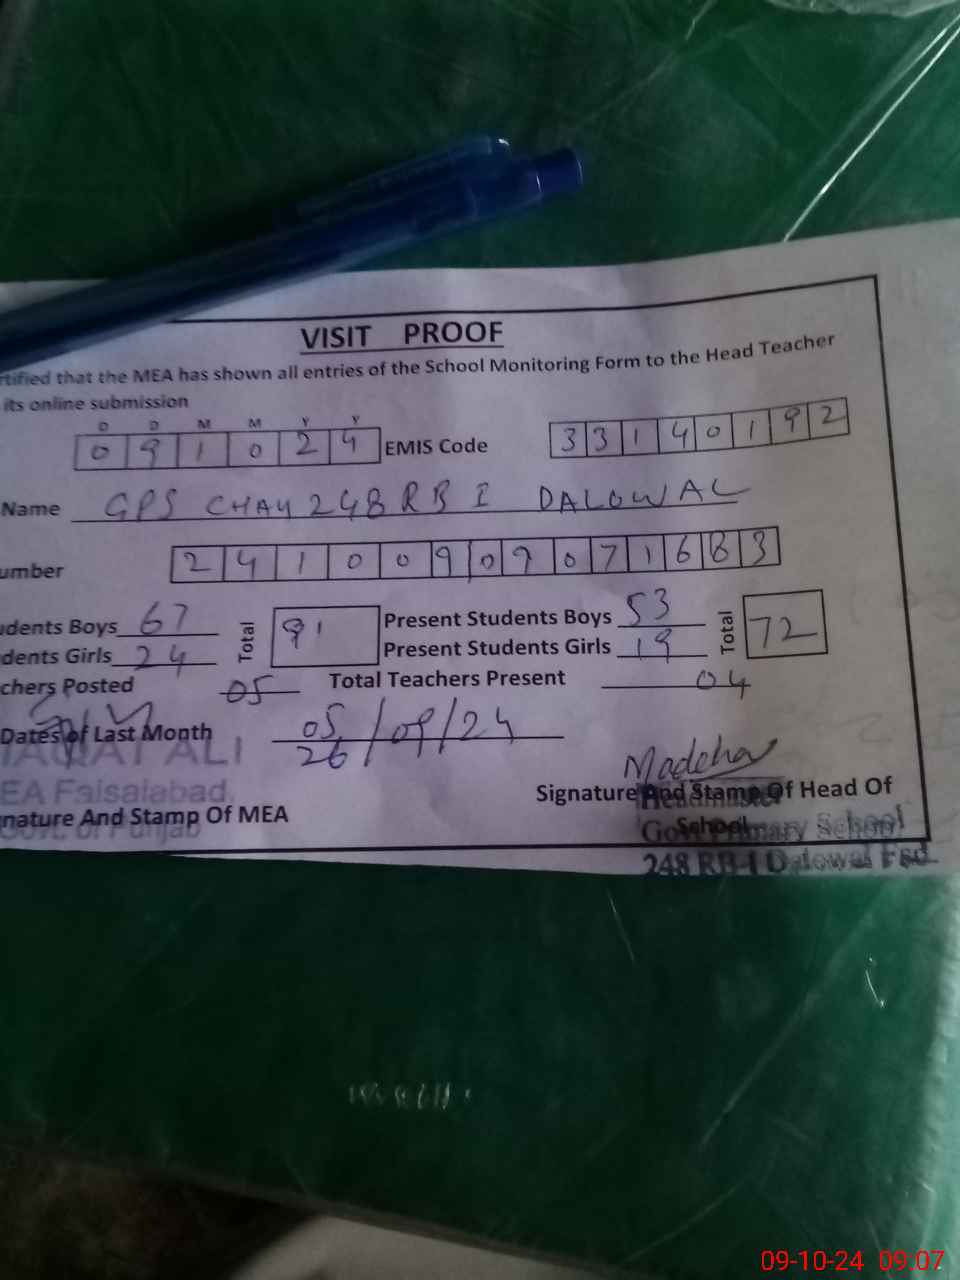 VISIT PROOF
rtified that the MEA has shown all entries of the School Monitoring Form to the Head Teacher
its online submission
D D M M Y Y
0 9 1 0 2 4 EMIS Code 3 3 1 4 0 1 9 2
Name GPS CHAK 248 RB I DALOWAL
umber 2 4 1 0 0 9 0 9 0 7 1 6 8 3
udents Boys 67 Total 91 Present Students Boys 53 Total 72
dents Girls 24 Present Students Girls 19
chers Posted 05 Total Teachers Present 04
Dates of Last Month 05, 26/09/24
IAQAT ALI
EA Faisalabad
Govt. of Punjab
nature And Stamp Of MEA
Madeha
Signature And Stamp Of Head Of
School
Headmaster
Govt Primary School
248 RB-I Dalowal Fsd.
09-10-24 09.07